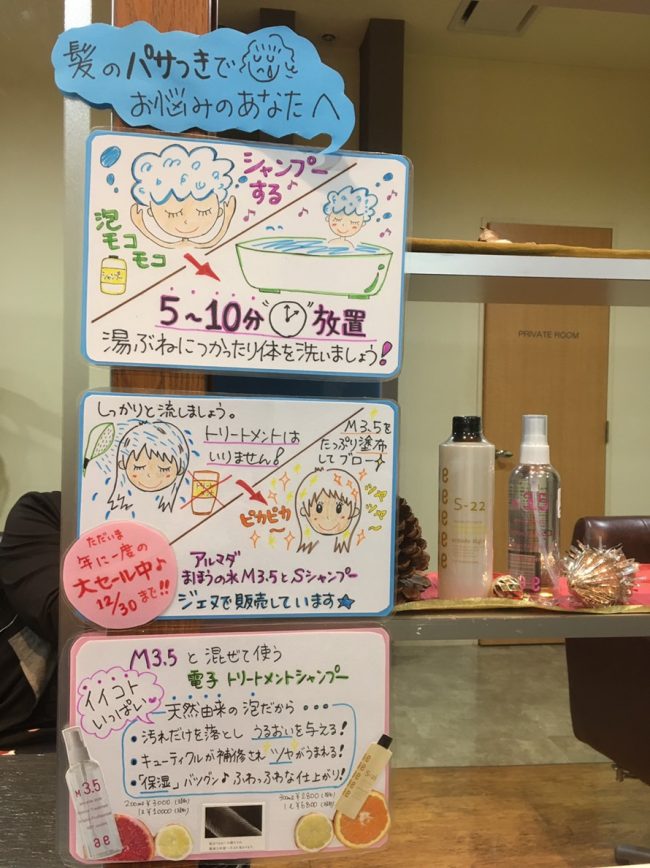 髪のパサつきで
お悩みのあなたへ
シャンプー
する♪
泡
モコ
モコ
5〜10分 放置
湯ぶねにつかたり体を洗いましょう!
しっかりと流しましょう。
トリートメントは
いりません!
M3.5を
たっぷり塗布
してブロー
ピカピカ
ツヤ
ツヤ
〜
アルマダ
まほうの水M3.5とSシャンプー
ジェヌで販売しています★
ただいま
年に一度の
大セール中♪
12/30まで!!
M3.5と混ぜて使う
電子トリートメントシャンプー
イイコト
いっぱい
天然由来の泡だから・・・
・汚れだけを落としうるおいを与える!
・キューティクルが補修されツヤがうまれる!
・「保湿」バツグン♪ふわっふわな仕上がり!
200ml ¥3000
1L ¥10000
300ml ¥2800
1L ¥6800
M3.5
PRIVATE ROOM
S-22